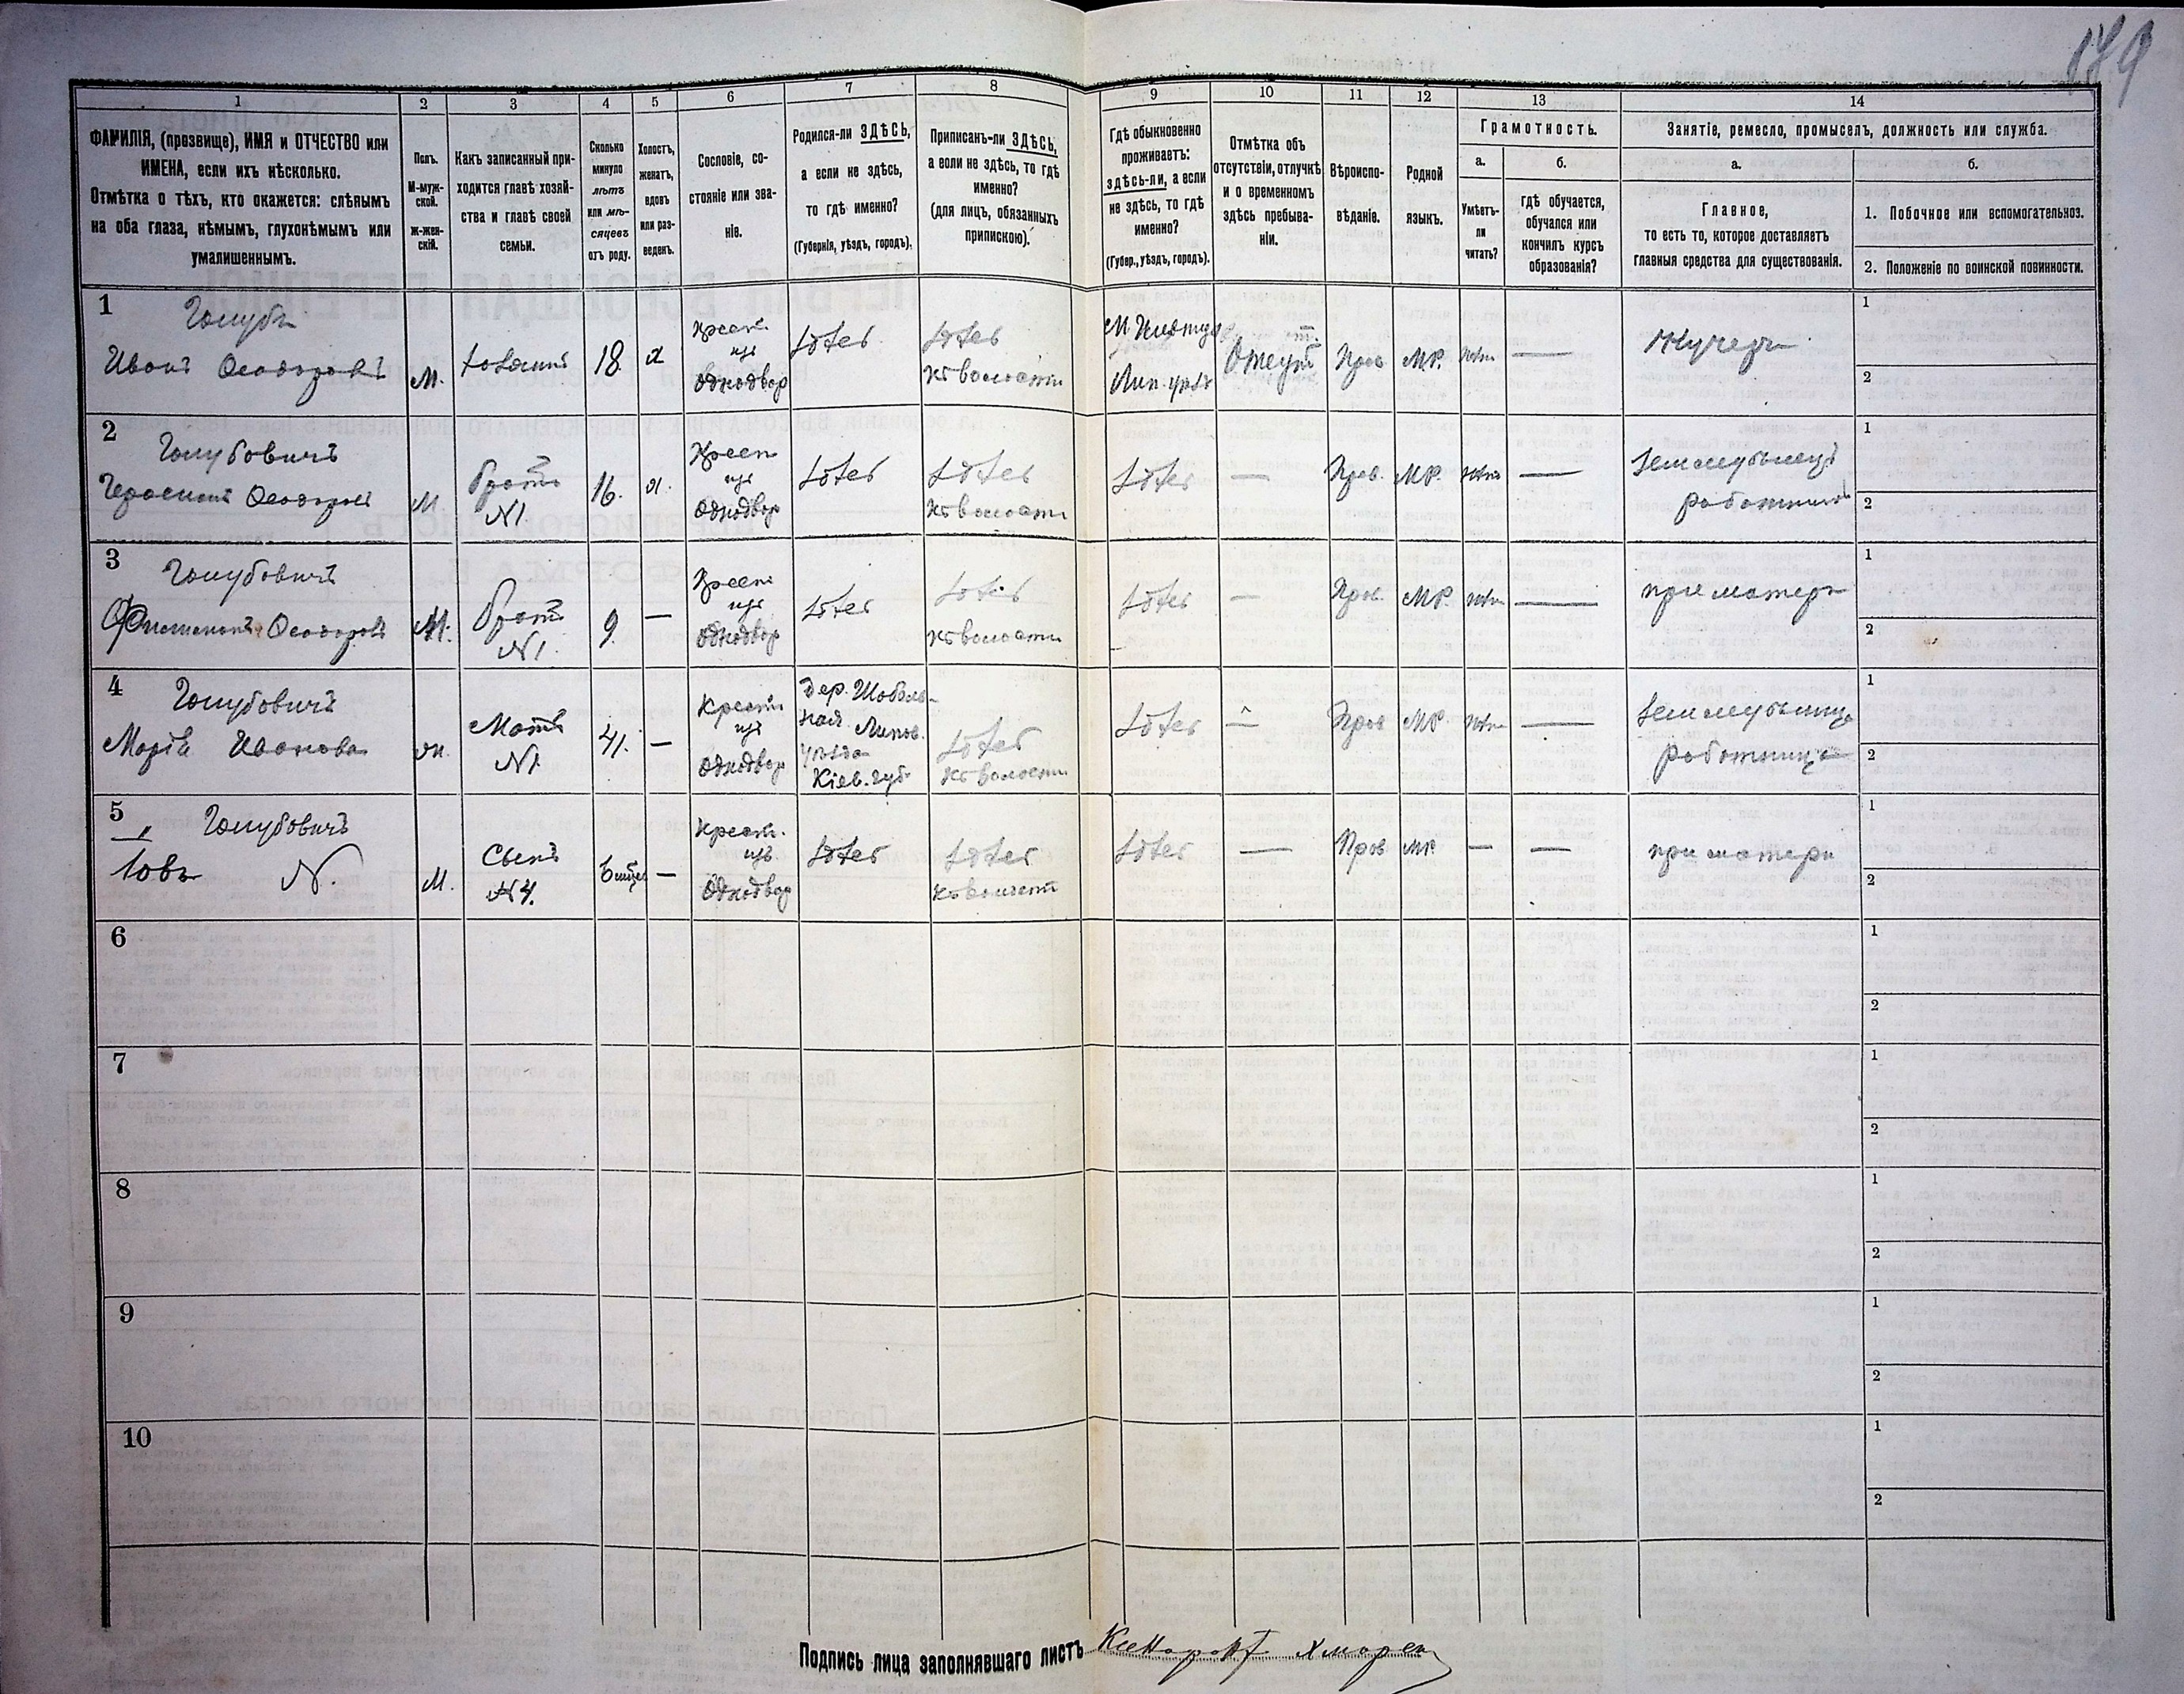 179
1 2 3 4 5 6 7 8 9 10 11 12 13 14
ФАМИЛІЯ, (прозвище), ИМЯ и ОТЧЕСТВО или
ИМЕНА, если ихъ нѣсколько.
Отмѣтка о тѣхъ, кто окажется: слѣпымъ
на оба глаза, нѣмымъ, глухонѣмымъ или
умалишеннымъ.
Полъ.
М-муж-
ской.
ж-жен-
скій.
Какъ записанный при-
ходится главѣ хозяй-
ства и главѣ своей
семьи.
Сколько
минуло
лѣтъ
или мѣ-
сяцевъ
отъ роду.
Холостъ,
женатъ,
вдовъ
или раз-
веденъ.
Сословіе, со-
стояніе или зва-
ніе.
Родился-ли ЗДѢСЬ,
а если не здѣсь,
то гдѣ именно?
(Губернія, уѣздъ, городъ).
Приписанъ-ли ЗДѢСЬ,
а если не здѣсь, то гдѣ
именно?
(для лицъ, обязанныхъ
припискою).
Гдѣ обыкновенно
проживаетъ:
здѣсь-ли, а если
не здѣсь, то гдѣ
именно?
(Губер., уѣздъ, городъ).
Отмѣтка объ
отсутствіи, отлучкѣ
и о временномъ
здѣсь пребыва-
ніи.
Вѣроиспо-
вѣданіе.
Родной
языкъ.
Грамотность.
а.
Умѣетъ-
ли
читать?
б.
гдѣ обучается,
обучался или
кончилъ курсъ
образованія?
Занятіе, ремесло, промыселъ, должность или служба.
а.
Главное,
то есть то, которое доставляетъ
главныя средства для существованія.
б.
1. Побочное или вспомогательноз.
2. Положеніе по воинской повинности.
1
Голубъ
Иванъ Ѳеодоровъ
М.
хозяинъ
18
х
Крест.
изъ
однодвор
здѣсь
здѣсь
къ волости
Лип. уѣзд
Отсут.
Прав
МР.
нѣт
—
Кучеръ
1
2
2
Голубовичъ
Герасимъ Ѳеодоровъ
М
братъ
N1
16.
х.
Крест
изъ
однодвор
здѣсь
здѣсь
къ волости
здѣсь
—
Прав.
МР.
нѣт
—
земледѣлецъ
работникъ
1
2
3
Голубовичъ
Филимонъ Ѳеодоровъ
М.
братъ
N1.
9.
—
Крест
изъ
однодвор
здѣсь
здѣсь
къ волости
здѣсь
—
Прав.
МР.
нѣт
—
при матери
1
2
4
Голубовичъ
Марія Иванова
ж.
Мать
N1.
41.
—
Крест
изъ
однодвор
дер.
Липов.
уѣзда
Кіев. губ.
здѣсь
къ волости
здѣсь
—
Прав
МР
нѣт
—
земледѣлица
работница
1
2
5
Голубовичъ
Іовъ N.
М.
Сынъ
N4.
6 мѣс
—
Крест.
изъ
однодвор
здѣсь
здѣсь
къ волости
здѣсь
—
Прав
МР.
—
—
при матери
1
2
6
1
2
7
1
2
8
1
2
9
1
2
10
1
2
Подпись лица заполнявшаго листъ